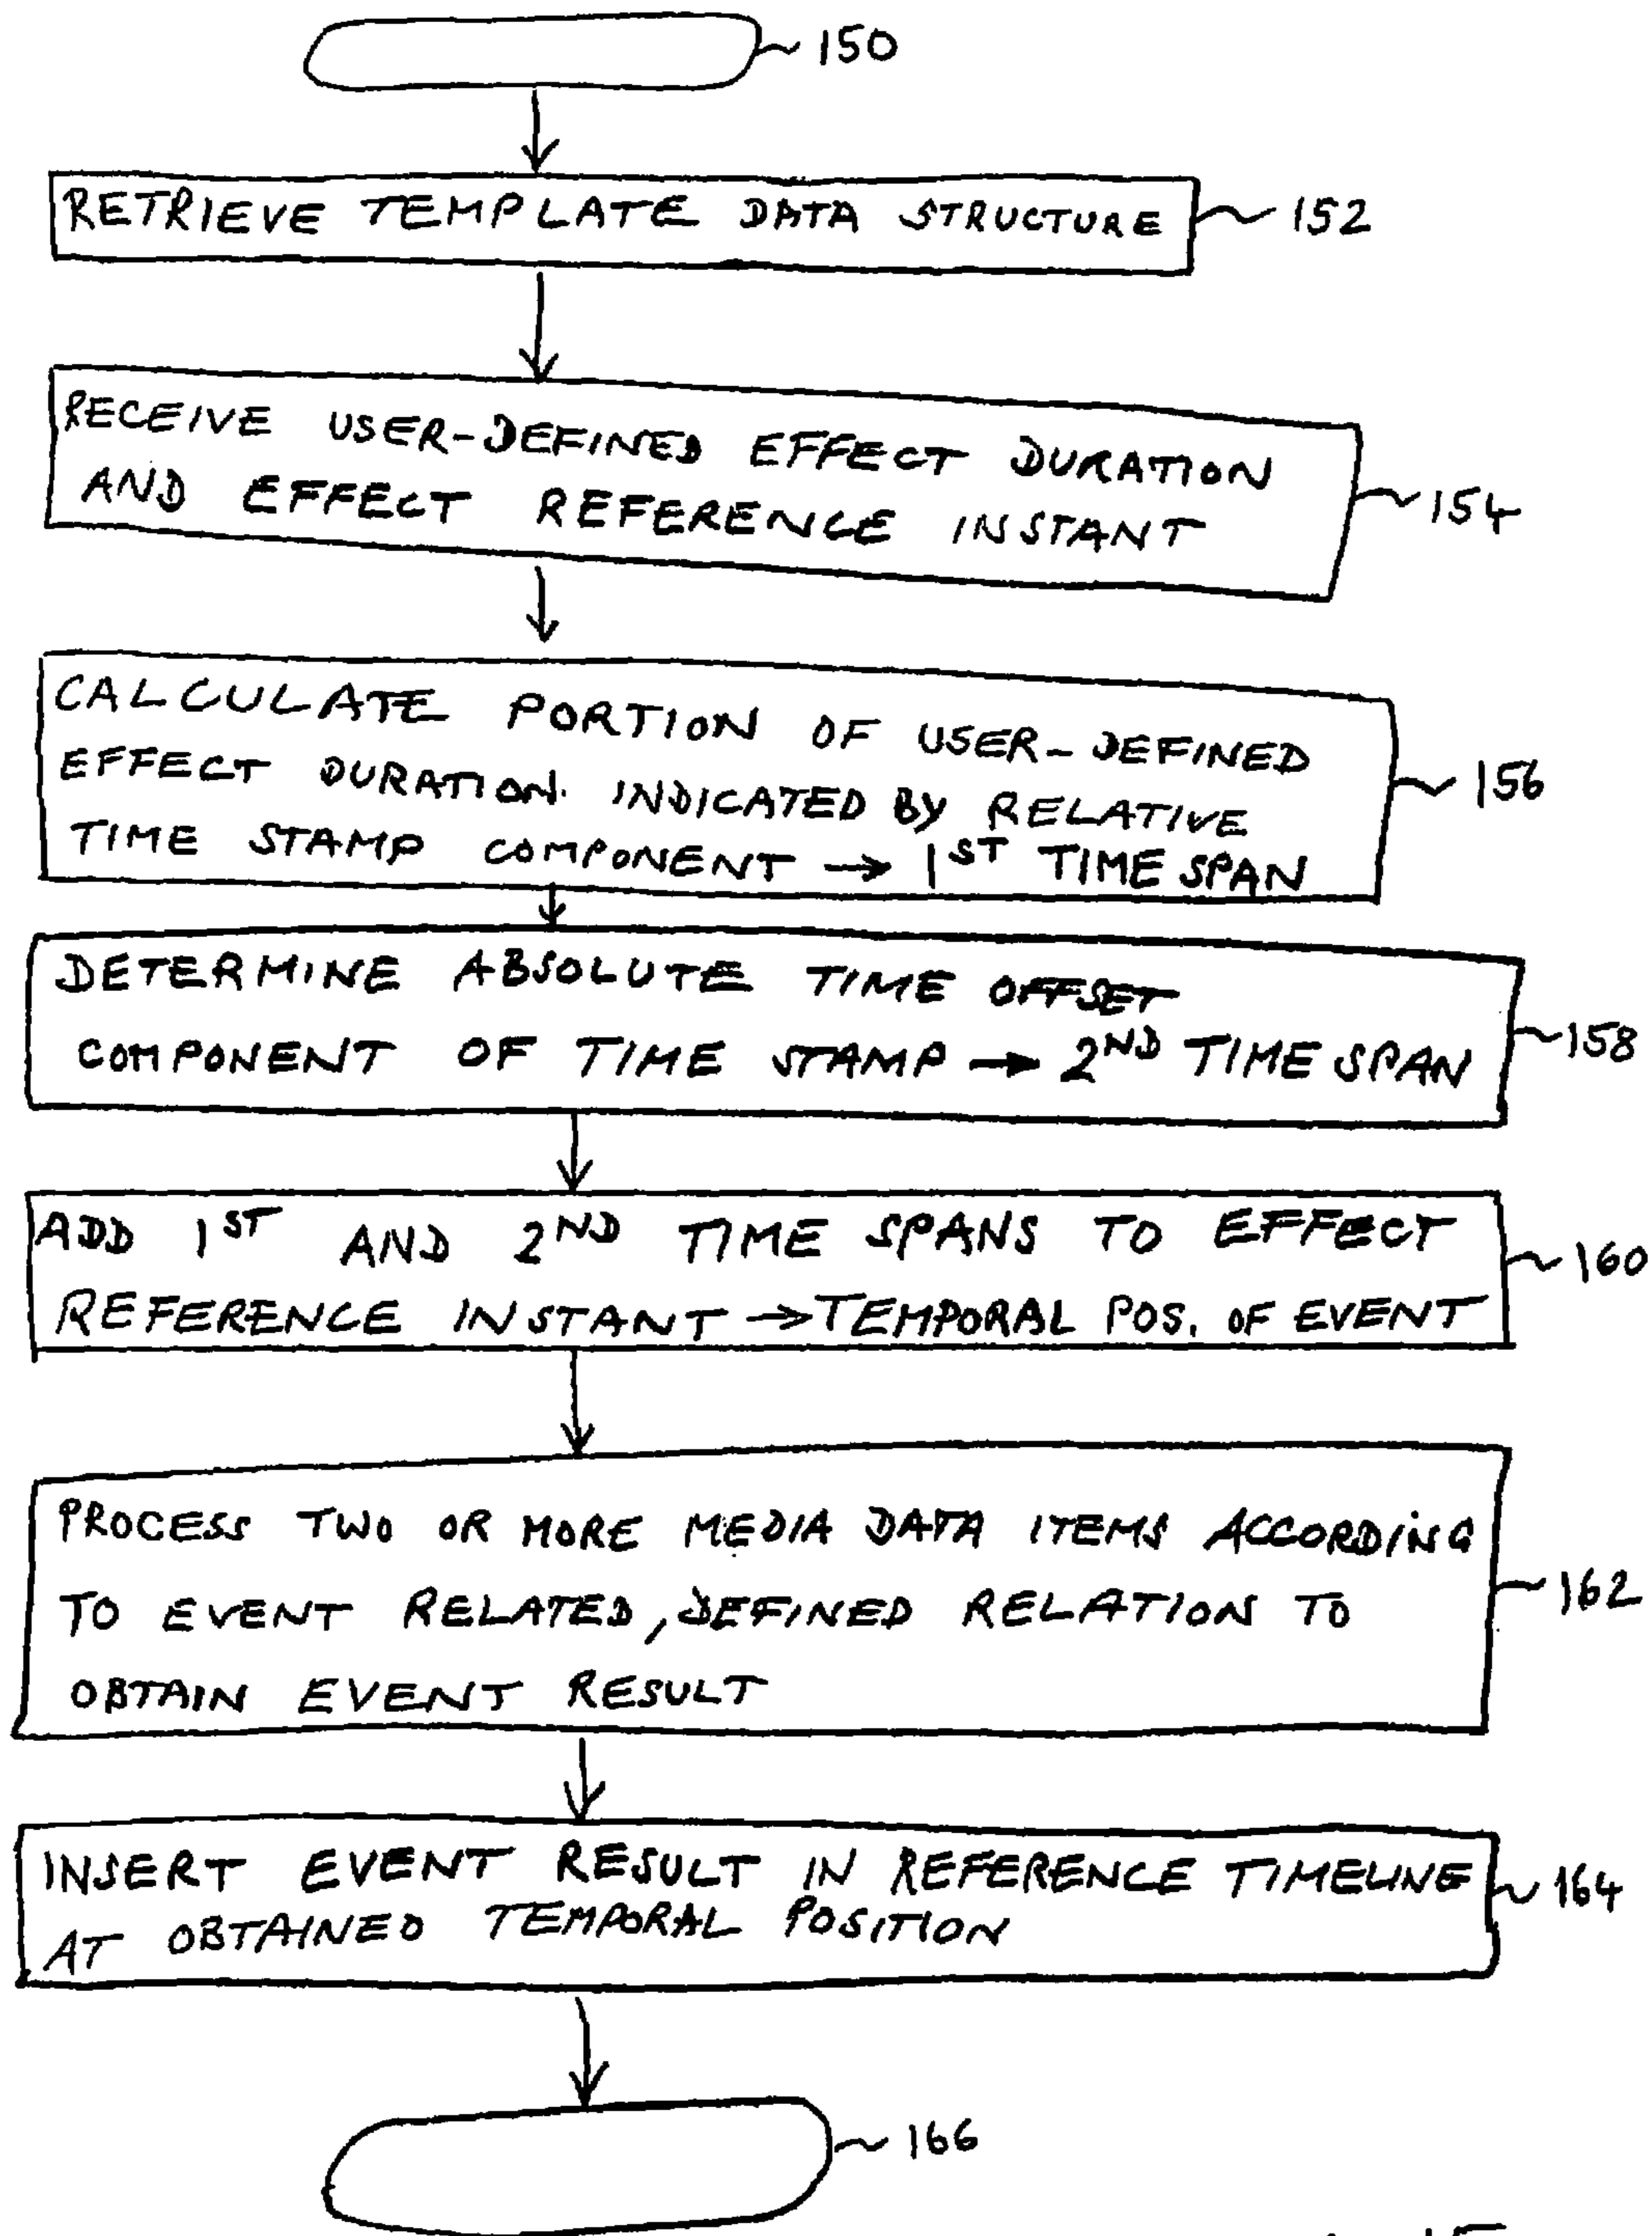 150
RETRIEVE TEMPLATE DATA STRUCTURE 152
RECEIVE USER-DEFINED EFFECT DURATION
AND EFFECT REFERENCE INSTANT 154
CALCULATE PORTION OF USER-DEFINED
EFFECT DURATION INDICATED BY RELATIVE 156
TIME STAMP COMPONENT → 1ST TIME SPAN
DETERMINE ABSOLUTE TIME OFFSET
COMPONENT OF TIME STAMP → 2ND TIME SPAN 158
ADD 1ST AND 2ND TIME SPANS TO EFFECT 160
REFERENCE INSTANT → TEMPORAL POS. OF EVENT
PROCESS TWO OR MORE MEDIA DATA ITEMS ACCORDING
TO EVENT RELATED, DEFINED RELATION TO 162
OBTAIN EVENT RESULT
INSERT EVENT RESULT IN REFERENCE TIMELINE 164
AT OBTAINED TEMPORAL POSITION
166